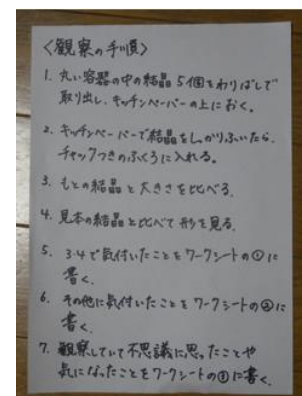 〈観察の手順〉
1. 丸い容器の中の結晶5個をわりばしで
取り出し、キッチンペーパーの上におく。
2. キッチンペーパーで結晶をしっかりふいたら、
チャックつきのふくろに入れる。
3. もとの結晶と大きさを比べる。
4. 見本の結晶と比べて形を見る。
5. 3・4で気付いたことをワークシートの①に
書く。
6. その他に気付いたことをワークシートの②に
書く。
7. 観察していて不思議に思ったことや
気になったことをワークシートの③に書く。